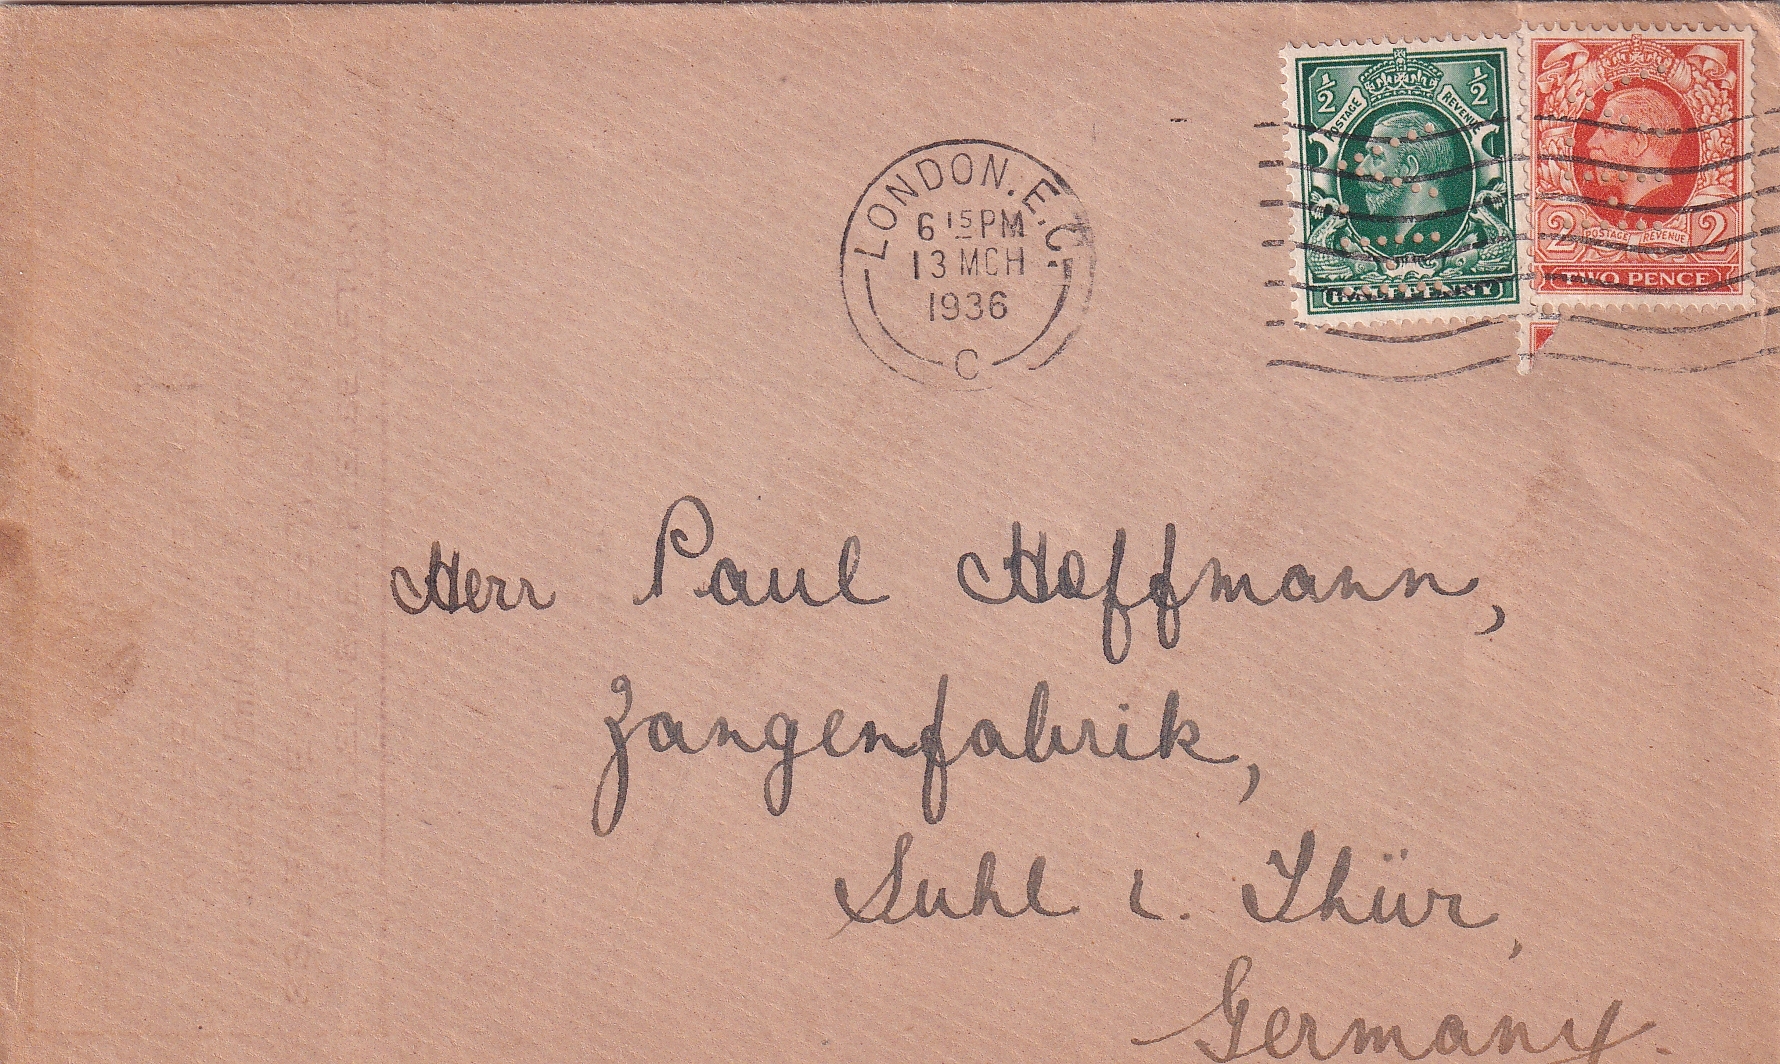 ½ ½
POSTAGE REVENUE
HALFPENNY
2 POSTAGE REVENUE 2
TWO PENCE
LONDON. E.C.
6 15 PM
13 MCH
1936
C
Herr Paul Hoffmann,
Zangenfabrik,
Suhl i. Thür,
Germany.